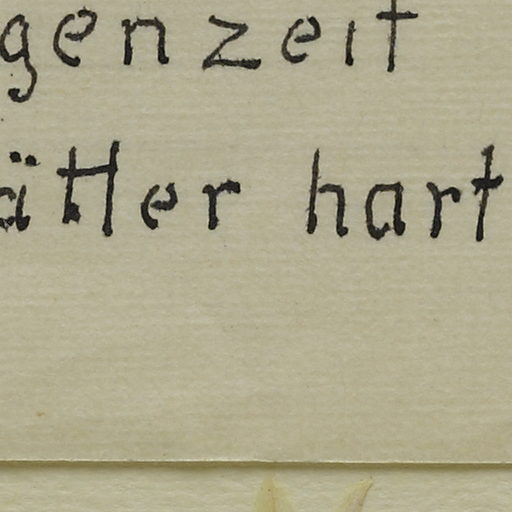 genzeit
ätter hart